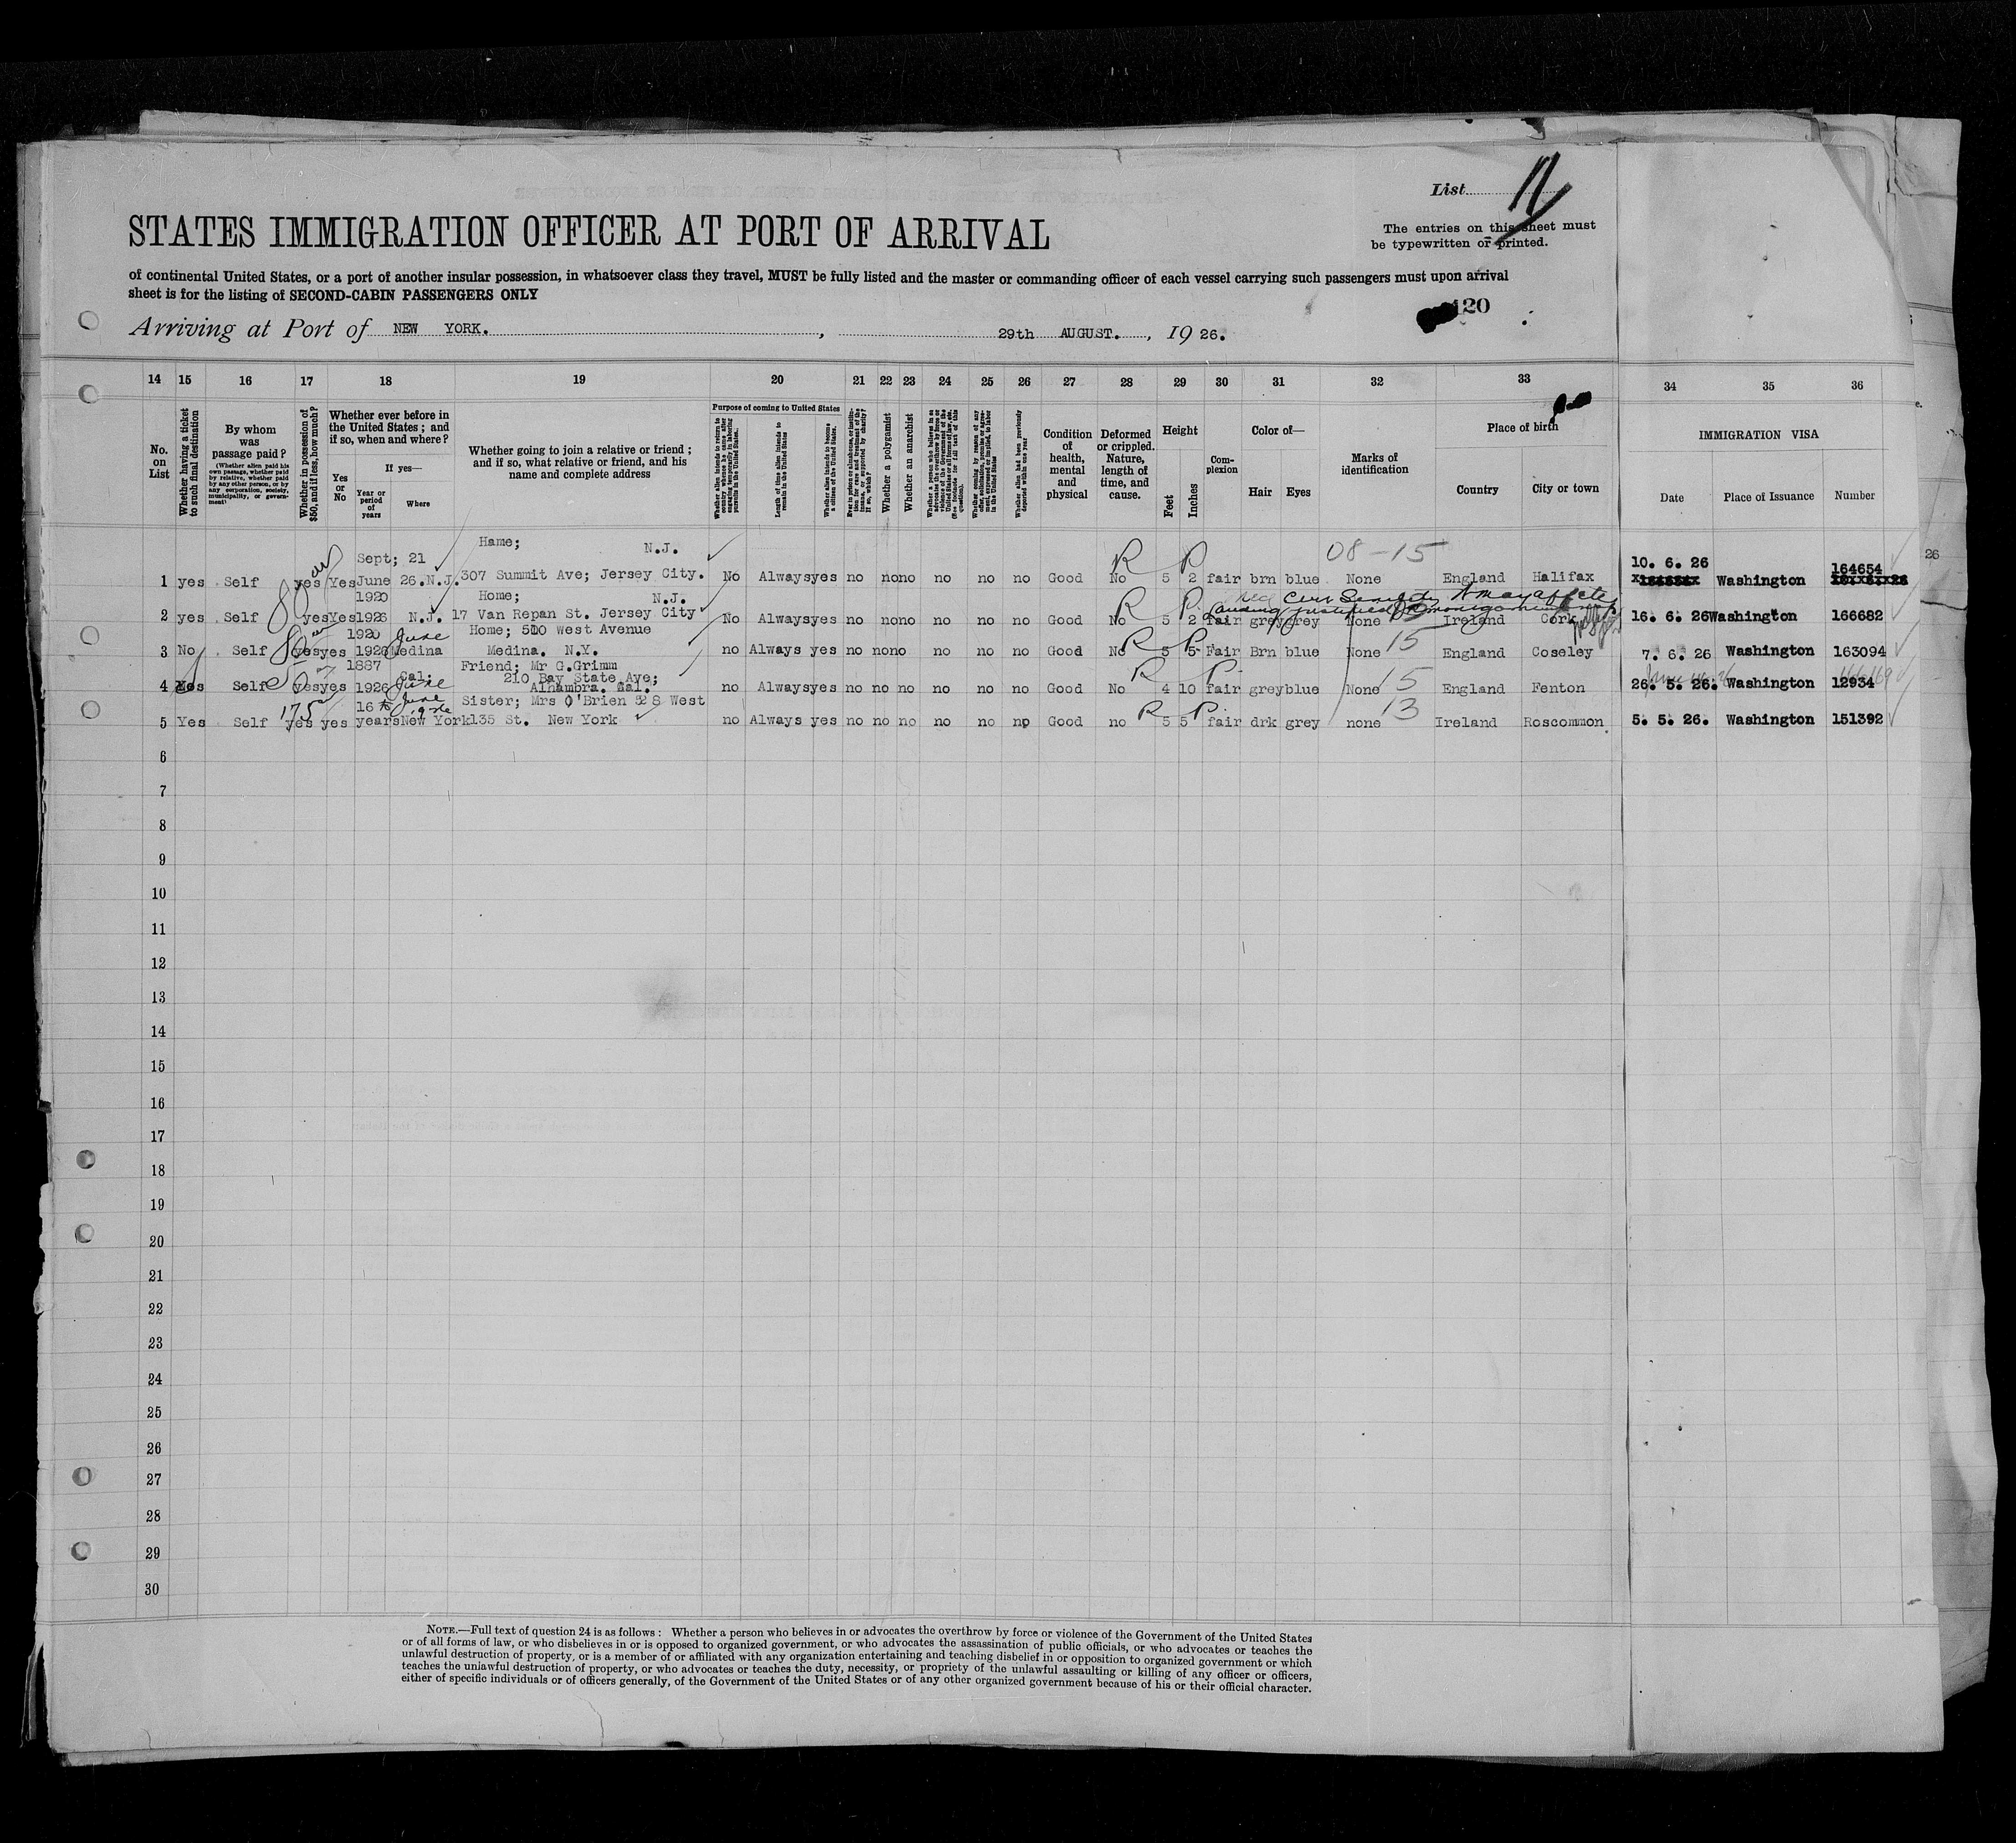 List
STATES IMMIGRATION OFFICER AT PORT OF ARRIVAL
The entries on this sheet must
be typewritten or printed.
of continental United States, or a port of another insular possession, in whatsoever class they travel, MUST be fully listed and the master or commanding officer of each vessel carrying such passengers must upon arrival
sheet is for the listing of SECOND-CABIN PASSENGERS ONLY
120
Arriving at Port of NEW YORK. , 29th AUGUST. , 19 26.
14 15 16 17 18 19 20 21 22 23 24 25 26 27 28 29 30 31 32 33 34 35 36
No. on List
Whether having a ticket to such final destination
By whom was passage paid?
(Whether alien paid his own passage, whether paid by relative, whether paid by any other person, or by any corporation, society, municipality, or government)
Whether in possession of $50, and if less, how much?
Whether ever before in the United States; and if so, when and where?
Yes or No
If yes—
Year or period of years
Where
Whether going to join a relative or friend; and if so, what relative or friend, and his name and complete address
Purpose of coming to United States
Whether alien intends to return to country whence he came after engaging temporarily in laboring pursuits in the United States.
Length of time alien intends to remain in the United States
Whether alien intends to become a citizen of the United States.
Ever in prison or almshouse, or institution for care and treatment of the insane, or supported by charity? If so, which?
Whether a polygamist
Whether an anarchist
Whether coming by reason of any offer, solicitation, promise or agreement, expressed or implied, to labor in the United States
Whether alien had been previously deported within one year
Condition of health, mental and physical
Deformed or crippled. Nature, length of time, and cause.
Height
Feet
Inches
Complexion
Color of—
Hair
Eyes
Marks of identification
Place of birth
Country
City or town
IMMIGRATION VISA
Date
Place of Issuance
Number
Sept; 21 Hame; N.J. 08-15 10. 6. 26 164654 26
1 yes Self yes Yes June 26. N.J. 307 Summit Ave; Jersey City. No Always yes no no no no no no Good No 5 2 fair brn blue None England Halifax Washington
1920 Home; N.J.
2 yes Self yes Yes 1926 N.J. 17 Van Repan St. Jersey City No Always yes no no no no no no Good No 5 2 fair grey grey None Ireland Cork 16. 6. 26 Washington 166682
1920 June Home; 510 West Avenue 15
3 No Self yes yes 1926 Medina Medina. N.Y. no Always yes no no no no no no Good No 5 5 Fair Brn blue None England Coseley 7. 6. 26 Washington 163094
1887 Cal; Friend; Mr G.Grimm
June 210 Bay State Ave; 15
4 Self yes yes 1926 Alhambra. Cal. no Always yes no no no no no no Good No 4 10 fair grey blue None England Fenton 26. 5. 26. Washington 12934
175 16 June Sister; Mrs O'Brien 528 West 13
5 Yes Self yes yes years New York 135 St. New York no Always yes no no no no no no Good no 5 5 fair drk grey none Ireland Roscommon 5. 5. 26. Washington 151392
6
7
8
9
10
11
12
13
14
15
16
17
18
19
20
21
22
23
24
25
26
27
28
29
30
NOTE.—Full text of question 24 is as follows: Whether a person who believes in or advocates the overthrow by force or violence of the Government of the United States
or of all forms of law, or who disbelieves in or is opposed to organized government, or who advocates the assassination of public officials, or who advocates or teaches the
unlawful destruction of property, or is a member of or affiliated with any organization entertaining and teaching disbelief in or opposition to organized government or which
teaches the unlawful destruction of property, or who advocates or teaches the duty, necessity, or propriety of the unlawful assaulting or killing of any officer or officers,
either of specific individuals or of officers generally, of the Government of the United States or of any other organized government because of his or their official character.